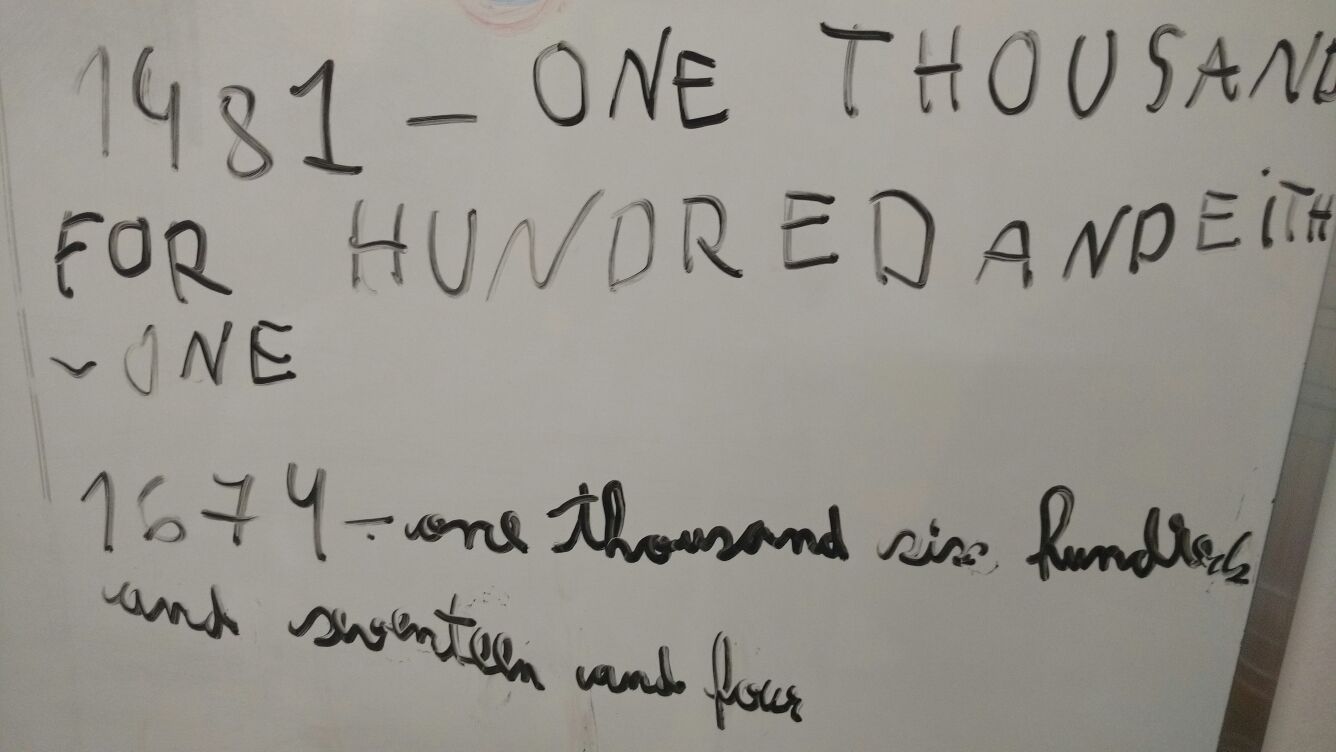 1481 - ONE THOUSAND
FOR HUNDRED AND EITH
- ONE
1674 - one thousand six hundred
and seventeen and four